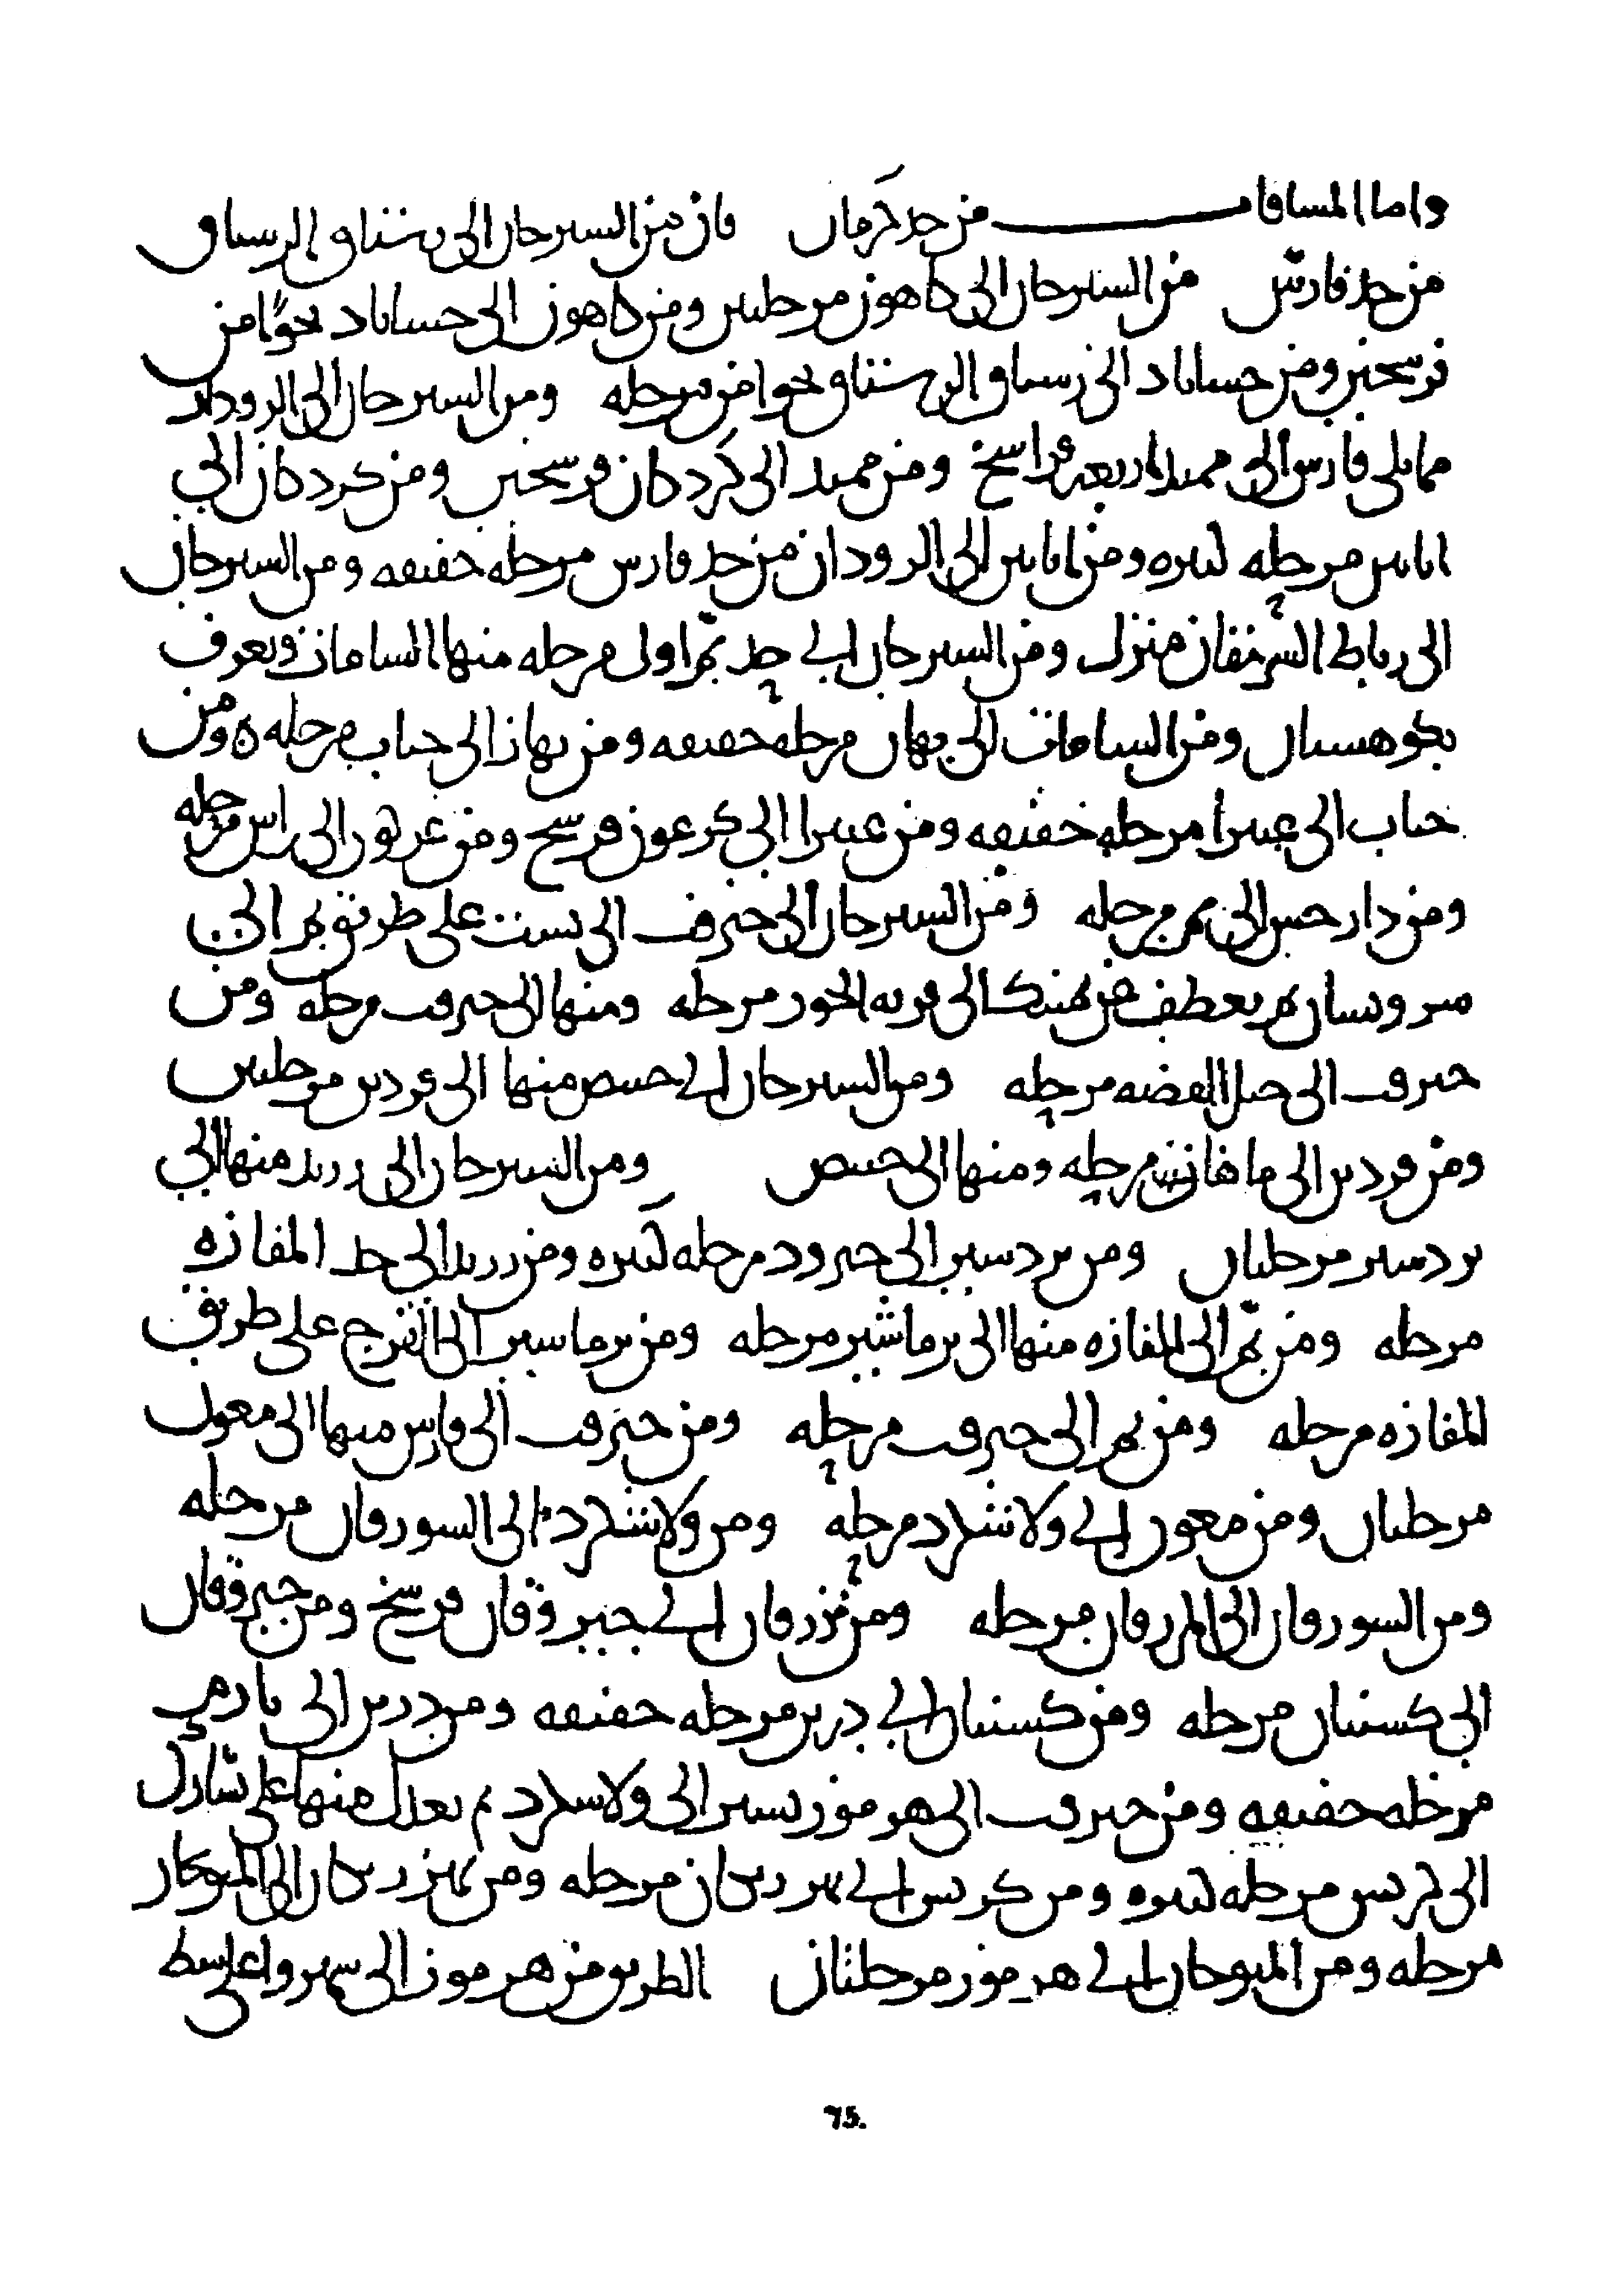 واما المسافات من حد كرمان فان من السيرجان الى رستاق الرستاق
من حد فارس من السيرجان الى كاهون مرحلتين ومن كاهون الى حسناباد نحوًا من
فرسخين ومن حسناباد الى رستاق الرستاق نحوا من مرحله ومن السيرجان الى الرودان
مما يلى فارس الى مميد اربعه فراسخ ومن مميد الى كردكان فرسخين ومن كردكان الى
اناس مرحله كبيره ومن اناس الى الرودان من حد فارس مرحله خفيفه ومن السيرجان
الى رباط السرمقان منزل ومن السيرجان الى حد بم اول مرحله منها الشامات وتعرف
بكوهستان ومن الشامات الى بهار مرحله خفيفه ومن بهار الى خناب مرحله ومن
خناب الى غبيرا مرحله خفيفه ومن غبيرا الى كوغون فرسخ ومن كوغون الى راس مرحله
ومن دارجين الى بم مرحله ومن السيرجان الى جيرفت الى بست على طريق بم الى
سروستان ثم يعطف من هنك الى قريه الجوز مرحله ومنها الى جيرفت مرحله ومن
جيرفت الى جبل الفضه مرحله ومن السيرجان الى خبيص منها الى فردين مرحلتين
ومن فردين الى ماهان مرحله ومنها الى خبيص ومن السيرجان الى زرند منها الى
بردسير مرحلتان ومن بردسير الى جنزرود مرحله كبيره ومن زرند الى حد المفازه
مرحله ومن بم الى المفازه منها الى نرماشير مرحله ومن نرماشير الى الفرج على طريق
المفازه مرحله ومن بم الى جيرفت مرحله ومن جيرفت الى فارس منها الى مغون
مرحلتان ومن مغون الى ولاشكرد مرحله ومن ولاشكرد الى السورقان مرحله
ومن السورقان الى المرزقان مرحله ومن مرزقان الى جيروقان فرسخ ومن جيروقان
الى كسستان مرحله ومن كسستان الى دربن مرحله خفيفه ومن دربن الى تارم
مرحله خفيفه ومن جيرفت الى هرموز تسير الى ولاشكرد ثم يعدل منها على يسارك
الى كومين مرحله كبيره ومن كومين الى نهرزنكان مرحله ومن نهرزنكان الى المنوجان
مرحله ومن المنوجان الى هرموز مرحلتان الطريق من هرموز الى شهروا على شط
75.